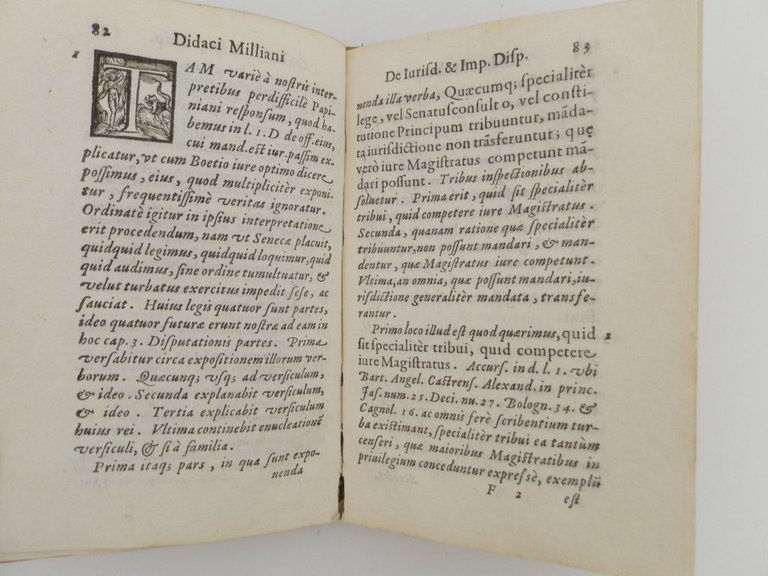 82
Didaci Milliani
1
TAM variè à nostris inter-
pretibus perdifficilè Papi-
niani responsum, quod ha-
bemus in l. 1. D de off. eius,
cui mand. est iur. passim ex-
plicatur, vt cum Boetio iure optimo dicere
possimus, eius, quod multiplicitèr exponi-
tur, frequentissimè veritas ignoratur.
Ordinatè igitur in ipsius interpretatione
erit procedendum, nam vt Senecæ placuit,
quidquid legimus, quidquid loquimur, quid
quid audimus, sine ordine tumultuatur, &
velut turbatus exercitus impedit sese, ac
sauciat. Huius legis quatuor sunt partes,
ideo quatuor futuræ erunt nostræ ad eam in
hoc cap. 3. Disputationis partes. Prima
versabitur circa expositionem illorum ver-
borum. Quæcunq; vsq; ad versiculum,
& ideo. Secunda explanabit versiculum,
& ideo. Tertia explicabit versiculum
huius rei. Vltima continebit enucleationē
versiculi, & si à familia.
Prima itaq; pars, in qua sunt expo-
nenda
De Iurisd. & Imp. Disp.
83
nenda illa verba, Quæcumq; specialitèr
lege, vel Senatusconsulto, vel consti-
tutione Principum tribuuntur, mādā-
ta iurisdictione non trāsferuntur; quę
verò iure Magistratus competunt mā-
dari possunt. Tribus inspectionibus ab-
soluetur. Prima erit, quid sit specialitèr
tribui, quid competere iure Magistratus.
Secunda, quanam ratione quæ specialitèr
tribuuntur, non possunt mandari, & man-
dentur, quæ Magistratus iure competunt.
Vltima, an omnia, quæ possunt mandari, iu-
risdictione generalitèr mandata, transfe-
rantur.
Primo loco illud est quod quærimus, quid
2
sit specialitèr tribui, quid competere
iure Magistratus. Accurs. in d. l. 1. vbi
Bart. Angel. Castrens. Alexand. in princ.
Jas. num. 25. Deci. nu. 27. Bologn. 34. &
Cagnol. 16. ac omnis ferè scribentium tur-
ba existimant, specialitèr tribui ea tantùm
censeri, quæ maioribus Magistratibus in
priuilegium conceduntur expressè, exemplū
F 2
est